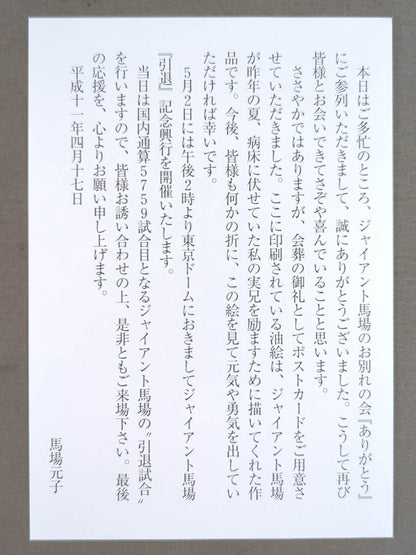 本日はご多忙のところ、ジャイアント馬場のお別れの会『ありがとう』
にご参列いただきまして、誠にありがとうございました。こうして再び
皆様とお会いできてさぞや喜んでいることと思います。
ささやかではありますが、会葬の御礼としてポストカードをご用意さ
せていただきました。ここに印刷されている油絵は、ジャイアント馬場
が昨年の夏、病床に伏せていた私の実兄を励ますために描いてくれた作
品です。今後、皆様も何かの折に、この絵を見て元気や勇気を出してい
ただければ幸いです。
5月2日には午後2時より東京ドームにおきましてジャイアント馬場
『引退』記念興行を開催いたします。
当日は国内通算5759試合目となるジャイアント馬場の〝引退試合〟
を行いますので、皆様お誘い合わせの上、是非ともご来場下さい。最後
の応援を、心よりお願い申し上げます。
平成十一年四月十七日
馬場元子